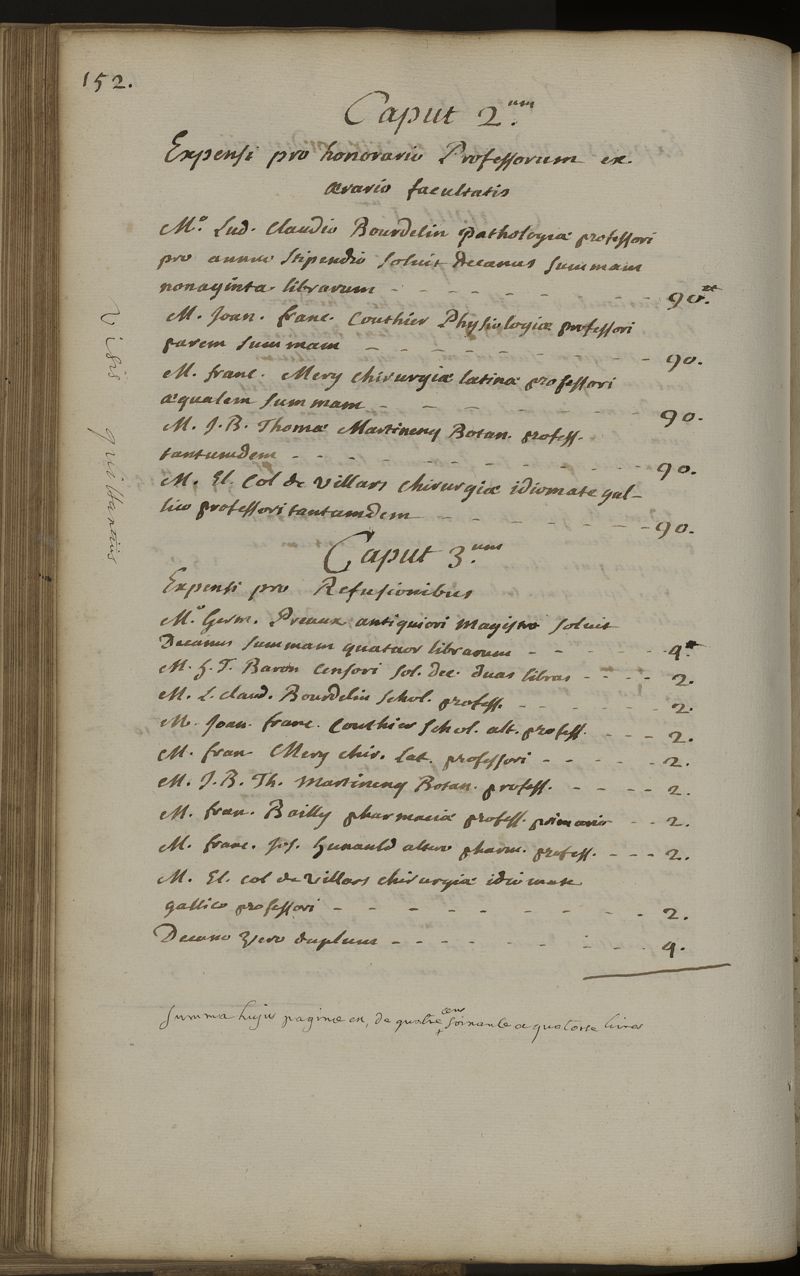 152.
Caput 2.um
Expensi pro honorario Professorum ex
ærario facultatis
M.o Lud. Claudio Bourdelin pathologiæ professori
pro annuo stipendio soluit decanus summam
nonaginta librarum - - - - - - - 90.tt
M. Joan. franc. Couthier Physiologiæ professori
parem summam - - - - - - - 90.
M. franc. Mery chirurgiæ latinæ professori
æqualem summam - - - - - - - 90.
M. J. B. Thomæ Martinenq Botan. profess.
tantumdem - - - - - - - - - 90.
M. El. Col de Villars chirurgiæ idiomate gal-
lico professori tantumdem - - - - - - 90.
Visis quittanciis
Caput 3.um
Expensi pro Refusionibus
M.o Germ. Preaux antiquiori magistro soluit
Decanus summam quatuor librarum - - - - - 4.tt
M. H. T. Baron Censori sol. dec. duas libras - - - - 2.
M. L. claud. Bourdelin Schol. profess. - - - - - 2.
M. Joan. franc. Couthier Schol. alt. profess. - - - 2.
M. fran Mery chir. Lat. professori - - - - - 2.
M. J. B. Th. Martinenq Botan. profess. - - - - 2.
M. fran. Bailly pharmaciæ profess. primario - - 2.
M. franc. Jos. Hunauld altero pharm. profess. - - - 2.
M. El. col de Villars chirurgiæ idiomate
gallico professori - - - - - - - - - 2.
Decano vero duplum - - - - - - - - 4.
Summa hujus paginæ en, de quatre cens soixante et quatorze livres